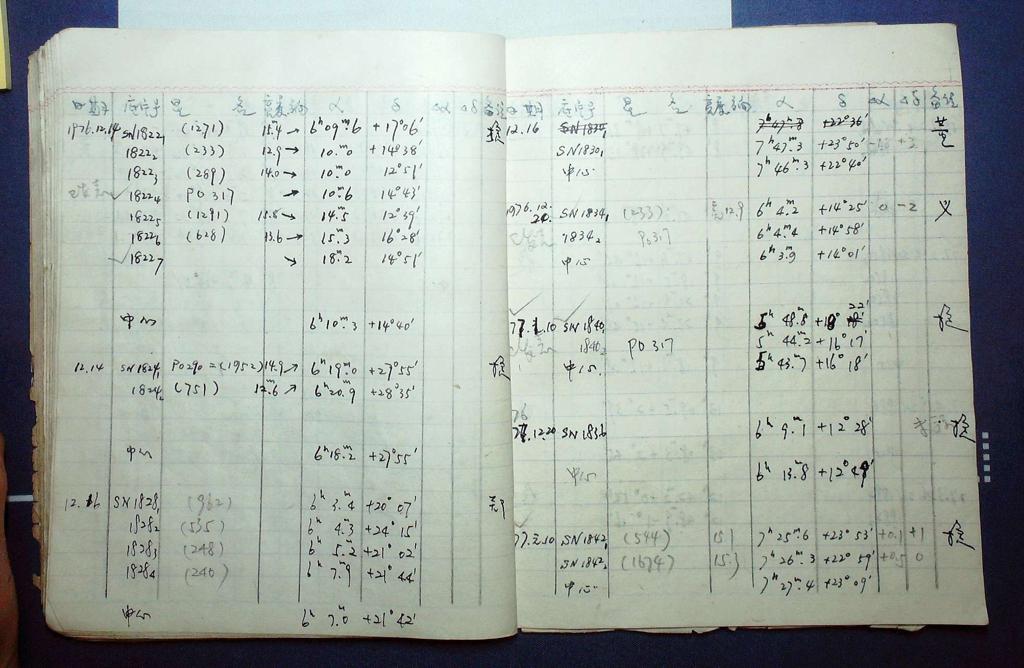 日期 序号 星 名 亮度 α δ Δα Δδ 备注
1976.12.14 SN1822₁ (1271) 15.4 → 6ʰ09ᵐ.6 +17°06′
1822₂ (233) 12.9 → 10ᵐ.0 +14°38′
1822₃ (289) 14.0 → 10ᵐ.0 12°51′
1822₄ PO317 → 10ᵐ.6 14°43′
1822₅ (1291) 15.8 → 14ᵐ.5 12°39′
1822₆ (628) 13.6 → 15ᵐ.3 16°28′
1822₇ → 18ᵐ.2 14°51′
中心 6ʰ10ᵐ.3 +14°40′
12.14 SN1824₁ PO290=(1952) 14.9 → 6ʰ19ᵐ.0 +27°55′
1824₂ (751) 12ᵐ.6 → 6ʰ20ᵐ.9 +28°35′
中心 6ʰ18ᵐ.2 +27°55′
12.16 SN1828₁ (962) 6ʰ3ᵐ.4 +20°07′
1828₂ (535) 6ʰ4ᵐ.3 +24°15′
1828₃ (248) 6ʰ5ᵐ.2 +21°02′
1828₄ (240) 6ʰ7ᵐ.9 +21°44′
中心 6ʰ7ᵐ.0 +21°42′
日期 序号 星 名 亮度 α δ Δα Δδ 备注
12.16 7ʰ47ᵐ.8 +22°36′
SN1830₁ 7ʰ47ᵐ.3 +23°50′ +2
中心 7ʰ46ᵐ.3 +22°40′
1976.12.20 SN1834₁ (233) 12.9 6ʰ4ᵐ.2 +14°25′ 0 -2 义
1834₂ PO317 6ʰ4ᵐ.4 +14°58′
中心 6ʰ3ᵐ.9 +14°01′
77.1.10 SN1840₁ 5ʰ48ᵐ.8 +18°22′
1840₂ PO317 5ʰ44ᵐ.2 +16°17′
中心 5ʰ43ᵐ.7 +16°18′
76.12.20 SN1836 6ʰ9ᵐ.1 +12°28′
中心 6ʰ13ᵐ.8 +12°49′
77.2.10 SN1842₁ (544) 15.1 7ʰ25ᵐ.6 +23°53′ +0.1 +1
SN1842₂ (1674) 15.3 7ʰ26ᵐ.3 +22°59′ +0.5 0
中心 7ʰ27ᵐ.4 +23°09′